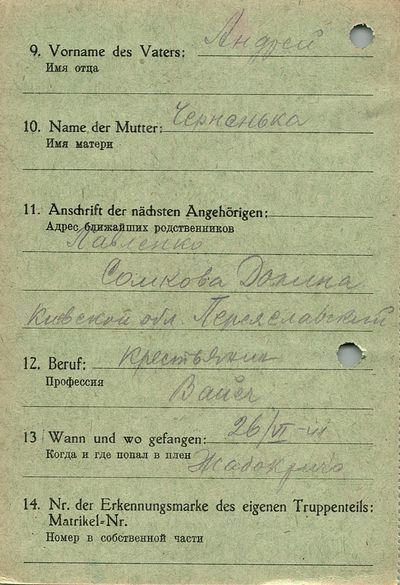 9. Vorname des Vaters: Андрей
Имя отца
10. Name der Mutter: Черненька
Имя матери
11. Anschrift der nächsten Angehörigen:
Адрес ближайших родственников
Павленко
Сомкова Долина
Киевской обл. Переяславский
12. Beruf: крестьянин
Профессия
13 Wann und wo gefangen: 26/VI-41
Когда и где попал в плен
14. Nr. der Erkennungsmarke des eigenen Truppenteils:
Matrikel-Nr.
Номер в собственной части